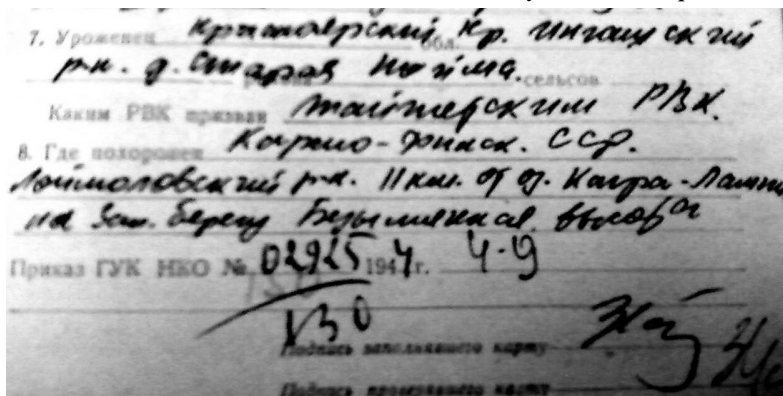 7. Уроженец Красноярский обл. Кр. Ингашский
р-н. д. Старая Пойма. сельсов
Каким РВК призван Тайшетским РВК.
8. Где похоронен Карело-Финск. ССР.
Лоймоловский р-н. 11 км. от оз. Кайра-Лампи
на Зап. берегу Безымянная. высота
Приказ ГУК НКО № 02925 1944 г. 4-9
130
Подпись заполнявшего карту
Подпись проверявшего карту